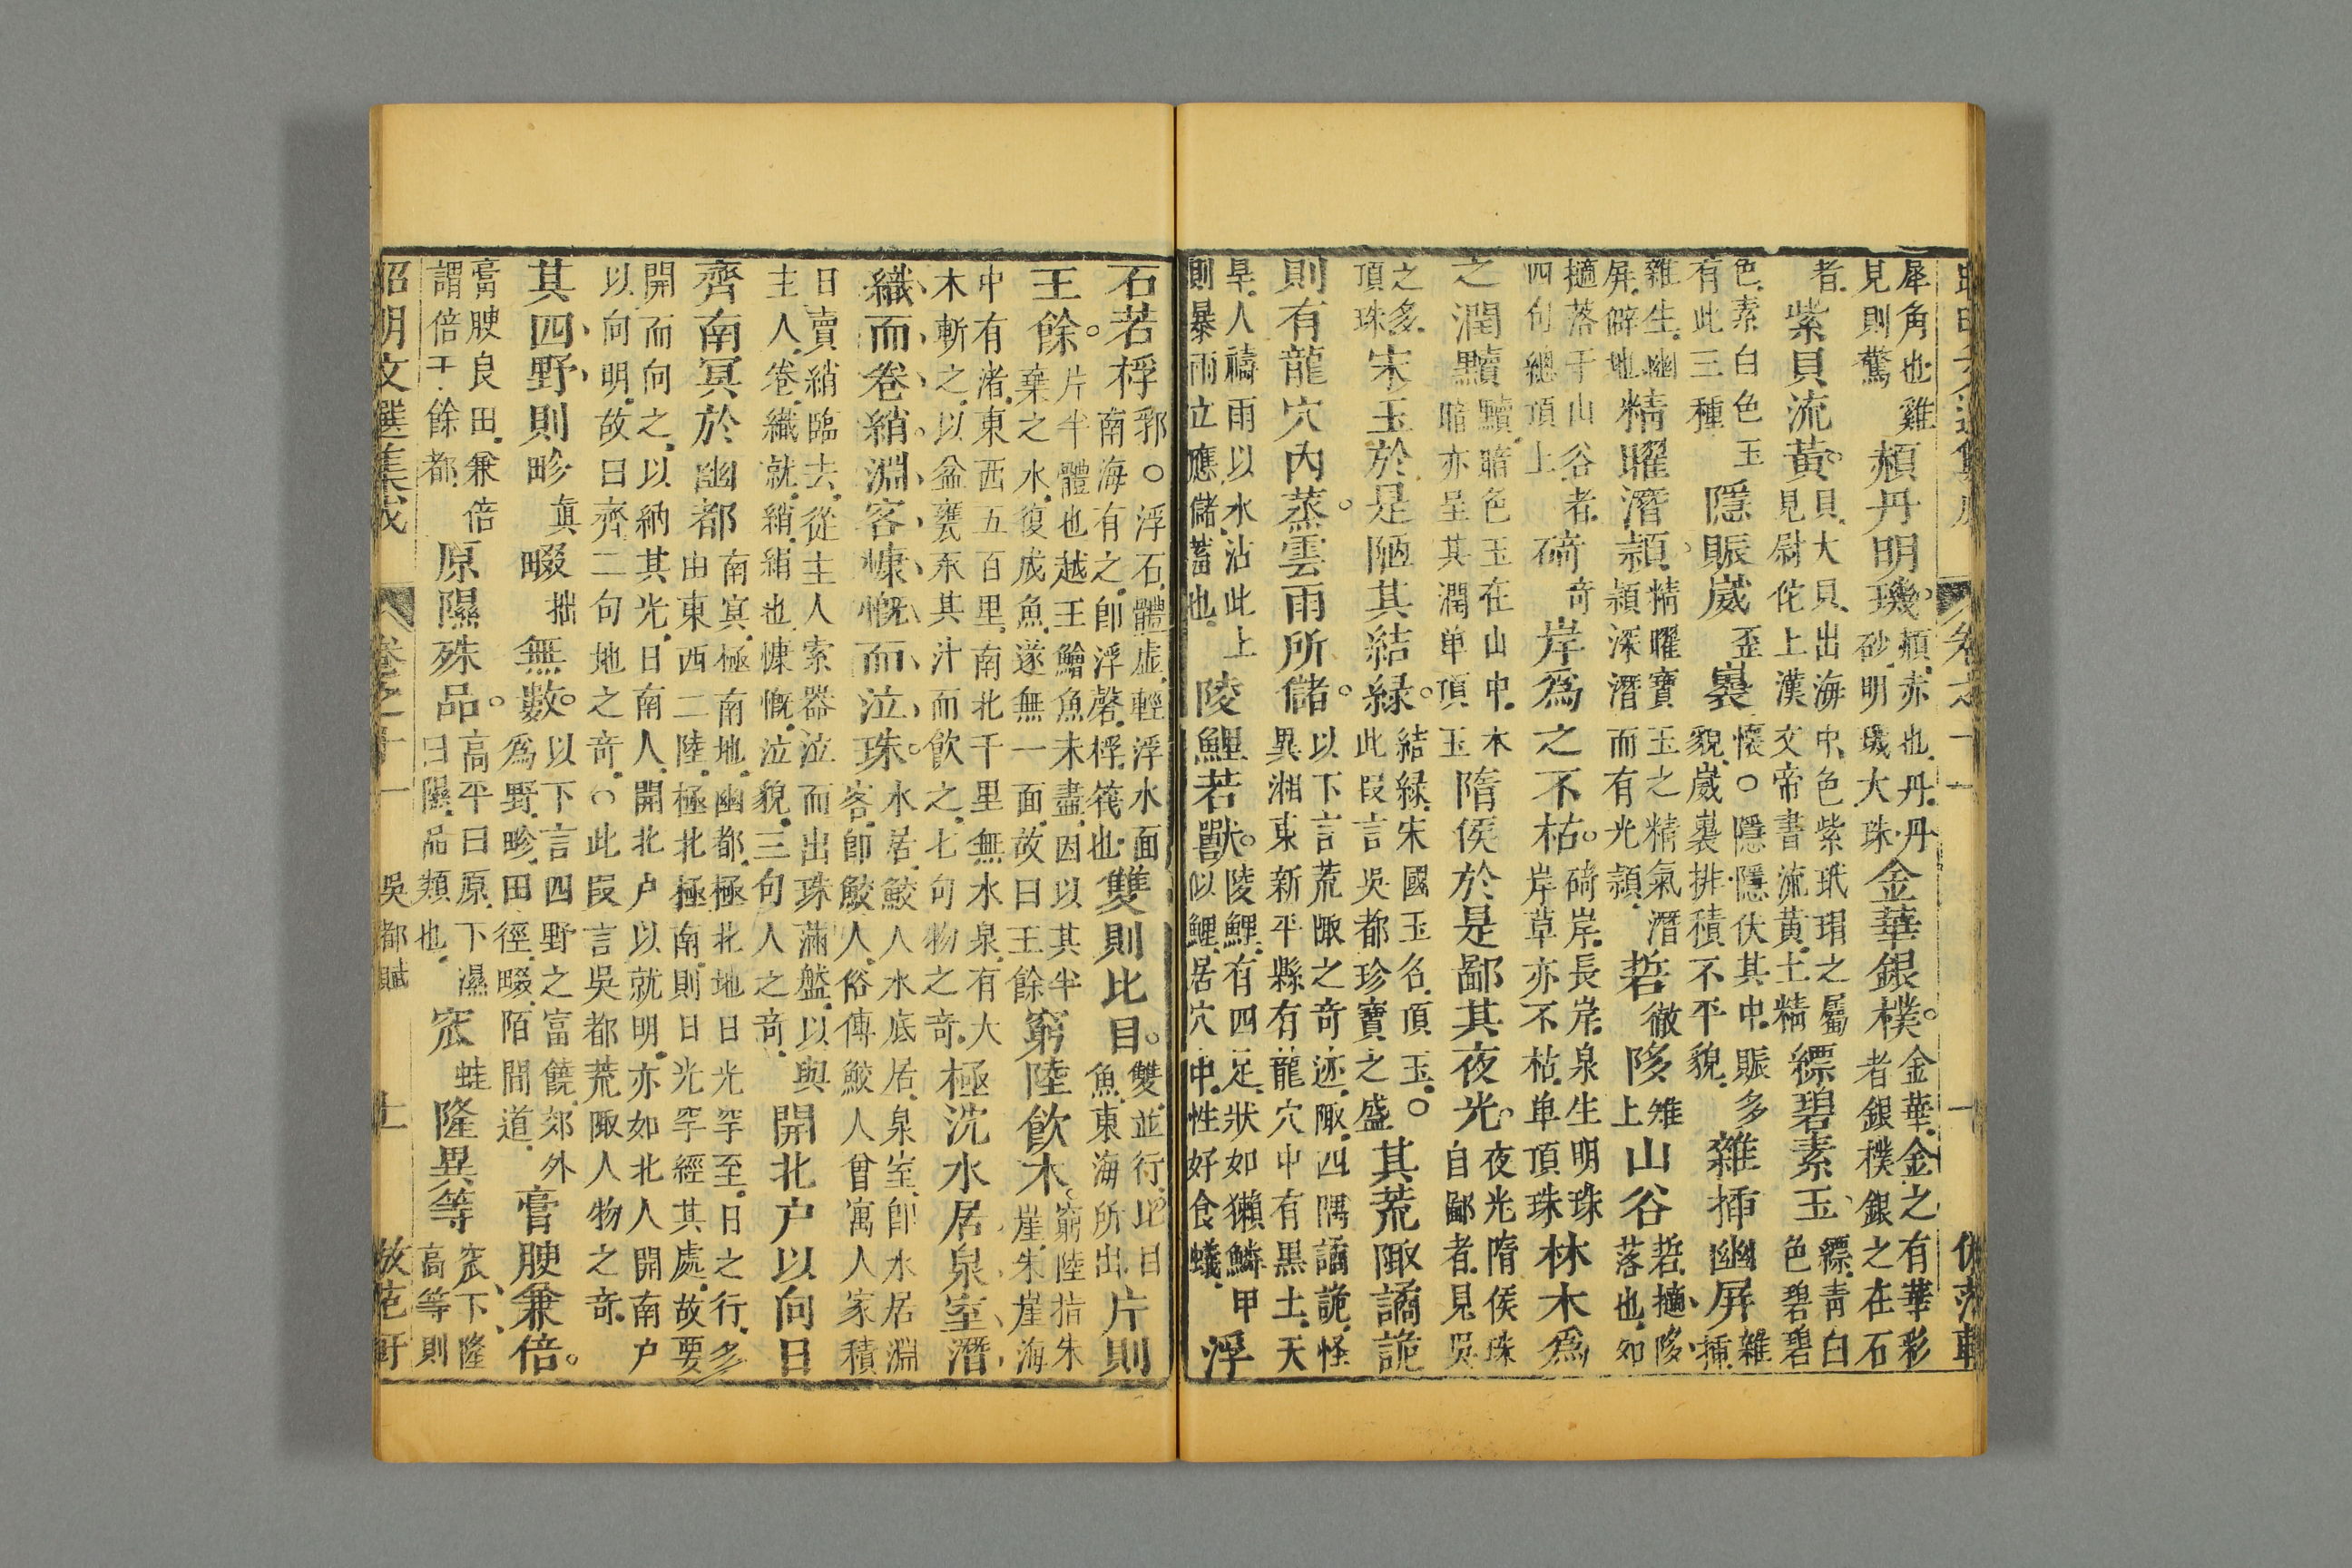 犀角也雞見則驚赬丹明璣。赬赤也丹丹砂明璣大珠金華銀樸。金華金之有華彩者銀樸銀之在石
者紫貝流黃。貝大貝出海中色紫玳瑁之屬見尉佗上漢文帝書流黃土精縹碧素玉縹青白色碧碧
色素白色玉有此三種隱賑崴歪裹懷○隱隱伏其中賑多貌崴裹排積不平貌雜揷幽屏雜揷
雜生幽屏僻地精曜潛熲精曜寶玉之精氣潛熲深潛而有光熲硩徹陊雉上山谷硩擿陊落也如
擿落于山谷者四句總頂上碕奇岸爲之不枯。碕岸長岸泉生明珠岸草亦不枯单頂珠林木爲
之潤黷黷暗色玉在山中木暗亦呈其潤单頂玉隋侯於是鄙其夜光。夜光隋侯珠自鄙者見吳
之多頂珠宋玉於是陋其結綠。結綠宋國玉名頂玉○此段言吳都珍寶之盛其荒陬譎詭
則有龍穴內蒸。雲雨所儲。以下言荒陬之奇迹陬四隅譎詭怪異湘東新平縣有龍穴中有黑土天
旱人禱雨以水沾此上則暴雨立應儲蓄也陵鯉若獸。陵鯉有四足狀如獺鱗甲似鯉居穴中性好食蟻浮
石若桴郛○浮石體虛輕浮水面南海有之卽浮磬桴筏也雙則比目。雙並行比目魚東海所出片則
王餘。片半體也越王鱠魚未盡因以其半棄之水復成魚遂無一面故曰王餘窮陸飮木。窮陸指朱崖朱崖海
中有渚東西五百里南北千里無水泉有大木斬之以盆甕承其汁而飮之七句物之奇極沈水居泉室潛
織而卷綃。淵客慷慨而泣珠。水居鮫人水底居泉室卽水居淵客卽鮫人俗傳鮫人曾寓人家積
日賣綃臨去從主人索器泣而出珠滿盤以與主人卷織就綃絹也慷慨泣貌三句人之奇開北户以向日
齊南冥於幽都南冥極南地幽都極北地日光罕至日之行多由東西二陸極北極南則日光罕經其處故要
開而向之以納其光日南人開北户以就明亦如北人開南户以向明故曰齊二句地之奇○此段言吳都荒陬人物之奇
其四野則畛眞畷拙無數。以下言四野之富饒郊外爲野畛田徑畷陌間道膏腴兼倍。
膏腴良田兼倍謂倍于餘都原隰殊品。高平曰原下濕曰隰品類也窊蛙隆異等窊下隆高等則
昭明文選集成 卷之十一 吳都賦 上